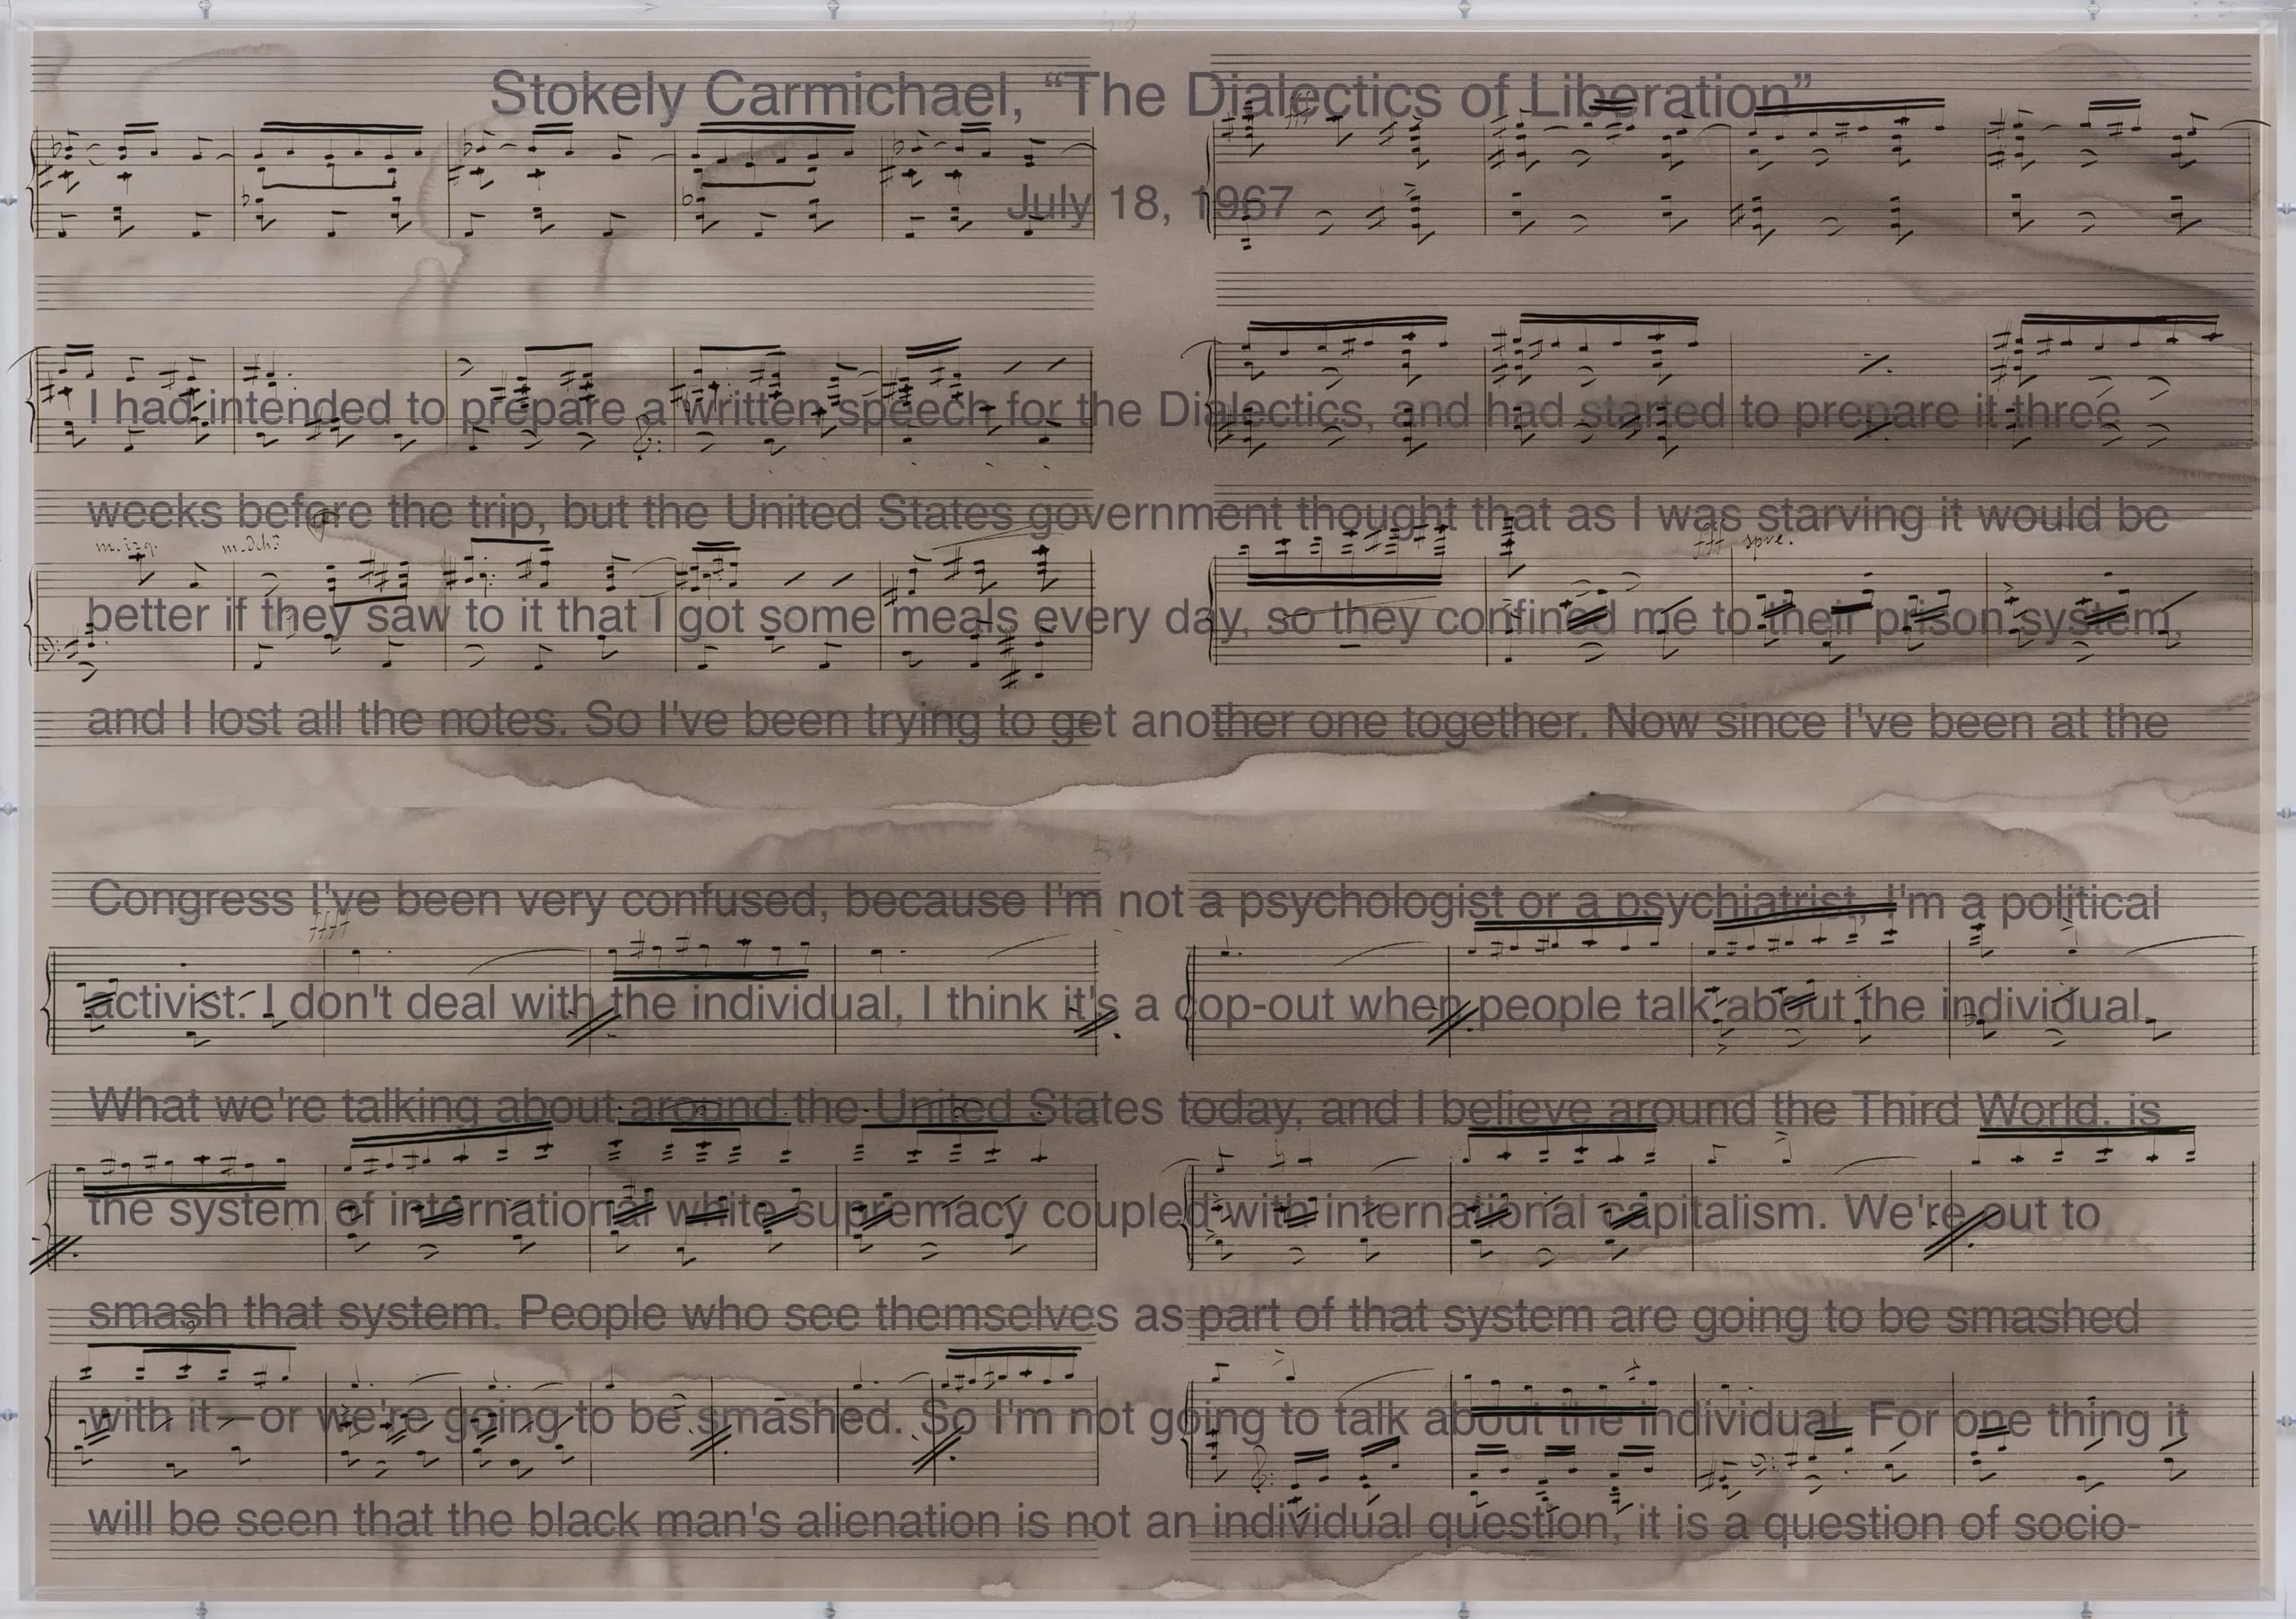 Stokely Carmichael, “The Dialectics of Liberation”
July 18, 1967
I had intended to prepare a written speech for the Dialectics, and had started to prepare it three
weeks before the trip, but the United States government thought that as I was starving it would be
m. izq.
fff
better if they saw to it that I got some meals every day, so they confined me to their prison system,
and I lost all the notes. So I've been trying to get another one together. Now since I've been at the
54
Congress I've been very confused, because I'm not a psychologist or a psychiatrist, I'm a political
ffff
activist. I don't deal with the individual, I think it's a cop-out when people talk about the individual.
What we're talking about around the United States today, and I believe around the Third World, is
the system of international white supremacy coupled with international capitalism. We're out to
smash that system. People who see themselves as part of that system are going to be smashed
with it—or we're going to be smashed. So I'm not going to talk about the individual. For one thing it
will be seen that the black man's alienation is not an individual question, it is a question of socio-